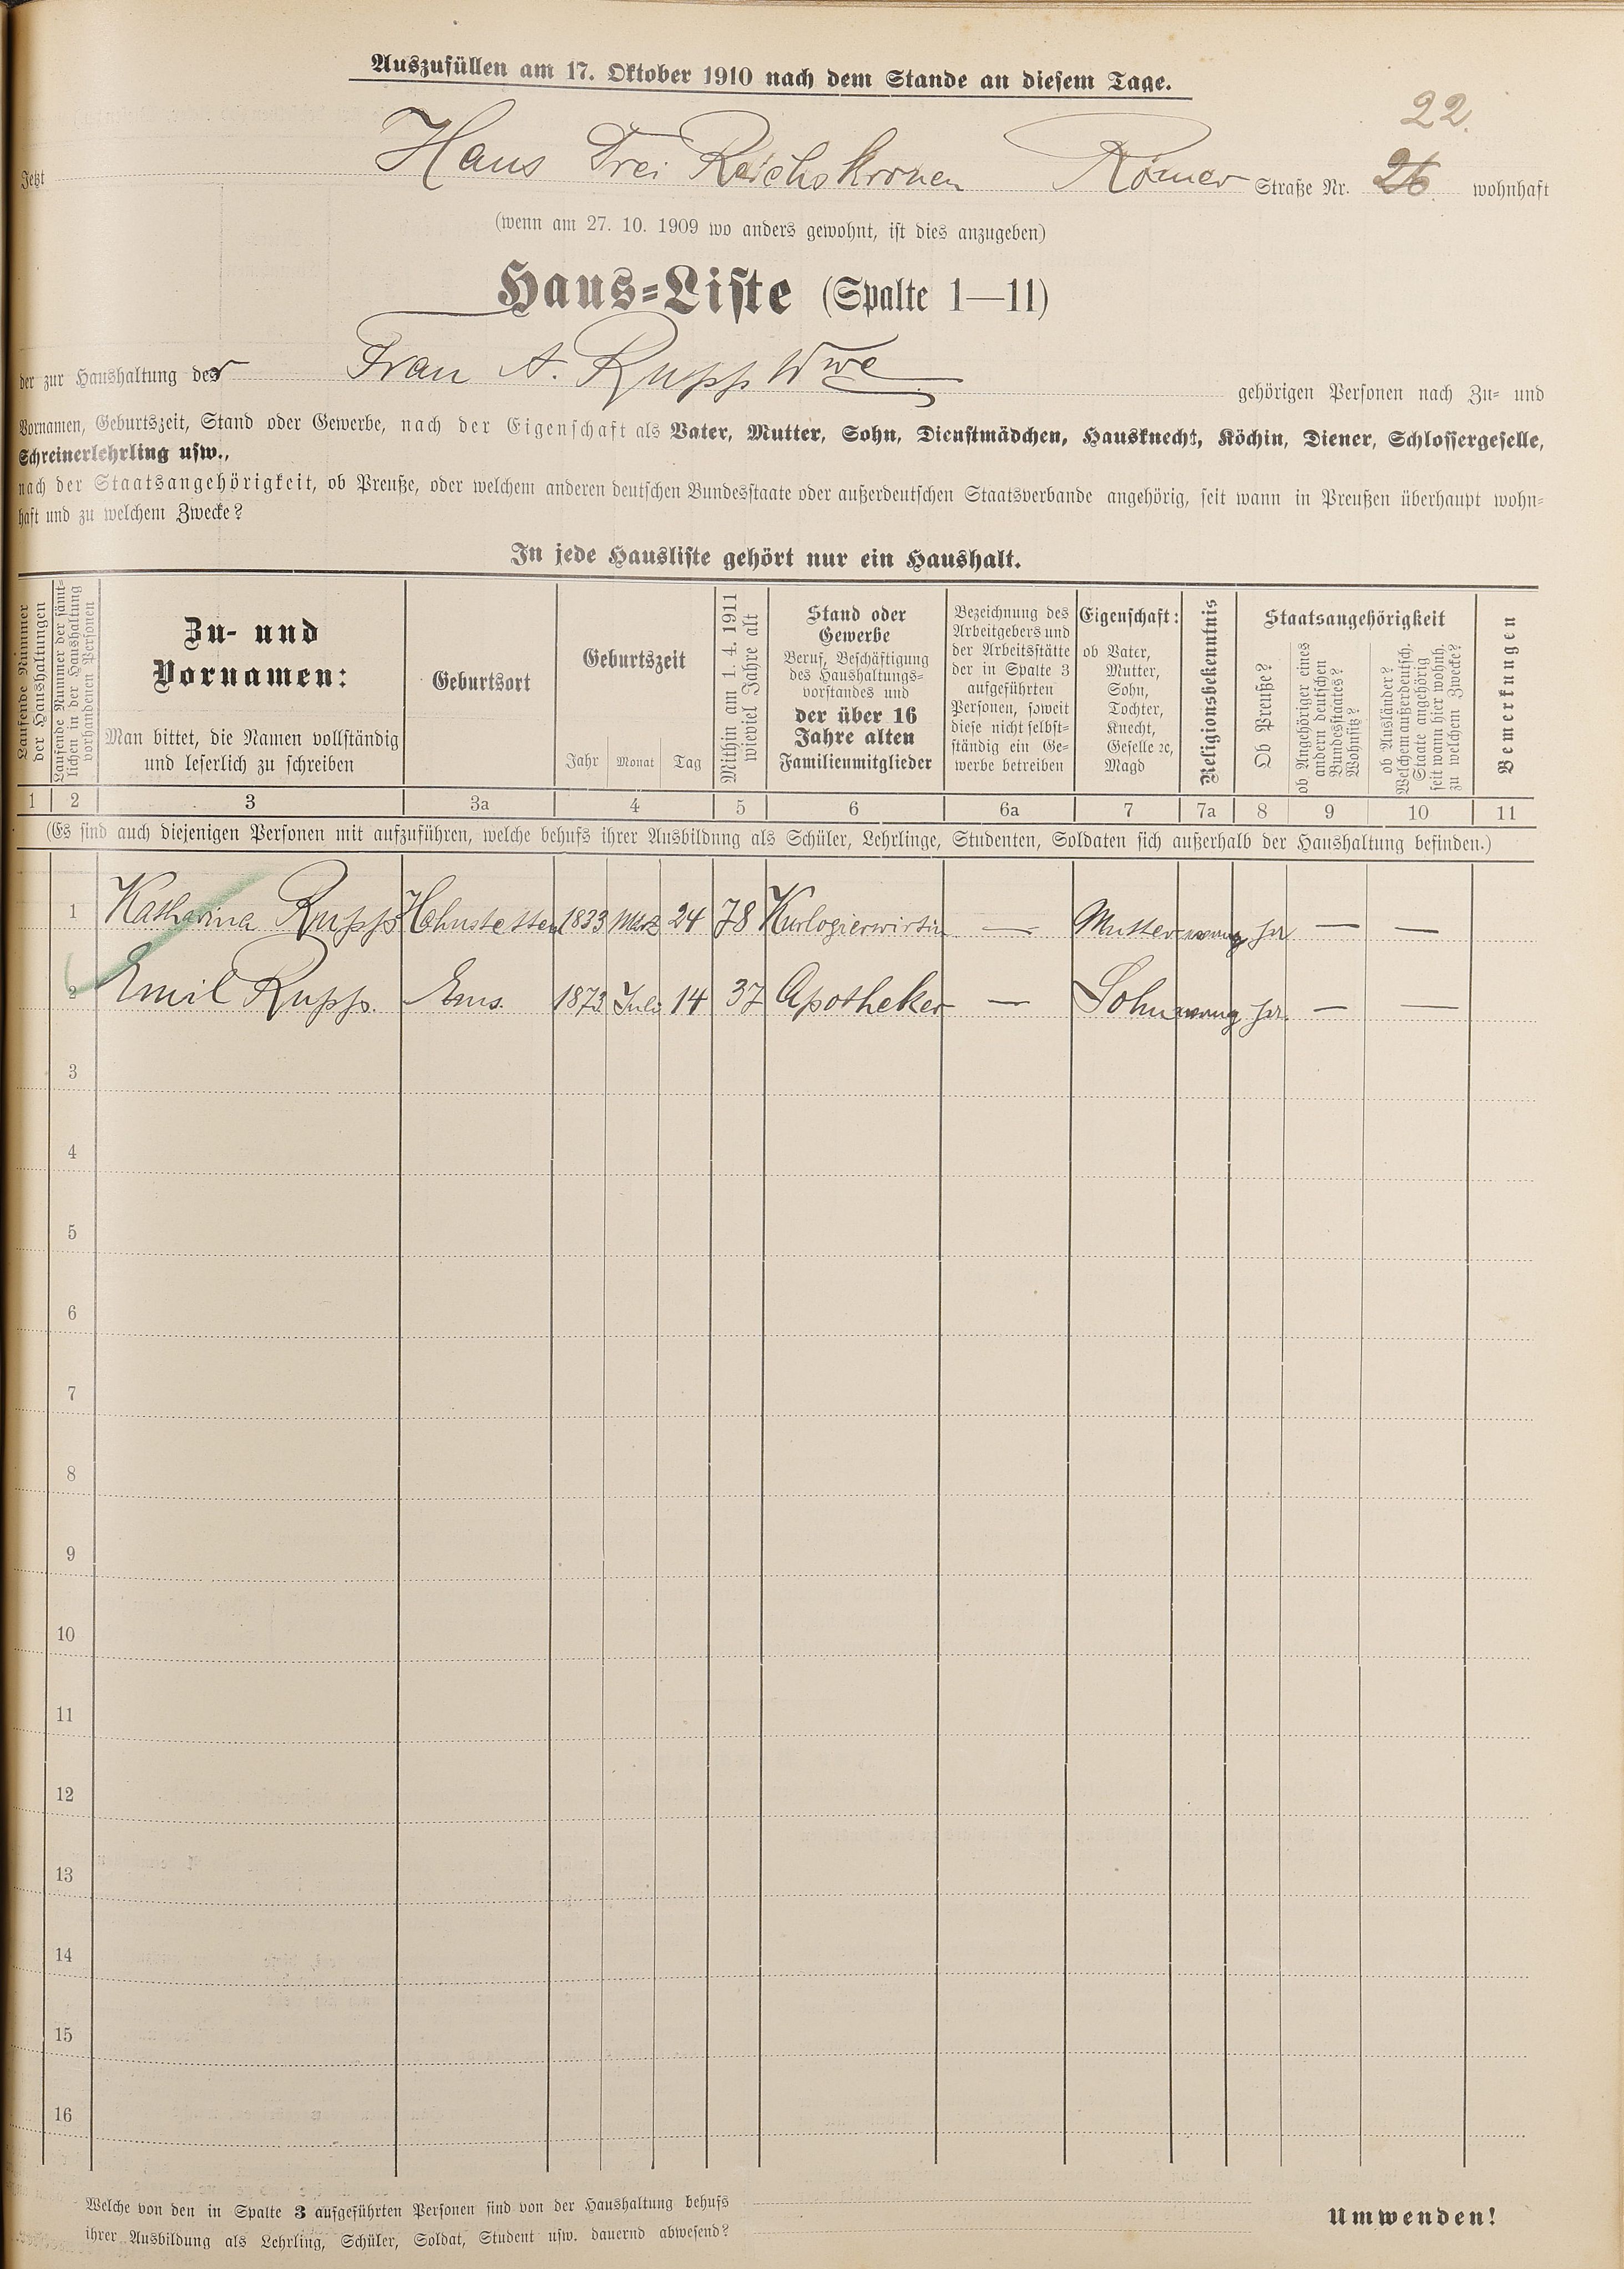 Auszufüllen am 17. Oktober 1910 nach dem Stande an diesem Tage.
22.
Jetzt Haus Drei Reichskronen Römer Straße Nr. 26. wohnhaft
(wenn am 27. 10. 1909 wo anders gewohnt, ist dies anzugeben)
Haus-Liste (Spalte 1—11)
der zur Haushaltung der Frau A. Rupp Wwe gehörigen Personen nach Zu- und
Vornamen, Geburtszeit, Stand oder Gewerbe, nach der Eigenschaft als Vater, Mutter, Sohn, Dienstmädchen, Hausknecht, Köchin, Diener, Schlossergeselle,
Schreinerlehrling usw.,
nach der Staatsangehörigkeit, ob Preuße, oder welchem anderen deutschen Bundesstaate oder außerdeutschen Staatsverbande angehörig, seit wann in Preußen überhaupt wohn-
haft und zu welchem Zwecke?
In jede Hausliste gehört nur ein Haushalt.
Laufende Nummer
der Haushaltungen
Laufende Nummer der sämt-
lichen in der Haushaltung
vorhandenen Personen
Zu- und
Vornamen:
Man bittet, die Namen vollständig
und leserlich zu schreiben
Geburtsort
Geburtszeit
Jahr Monat Tag
Mithin am 1. 4. 1911
wieviel Jahre alt
Stand oder
Gewerbe
Beruf, Beschäftigung
des Haushaltungs-
vorstandes und
der über 16
Jahre alten
Familienmitglieder
Bezeichnung des
Arbeitgebers und
der Arbeitsstätte
der in Spalte 3
aufgeführten
Personen, soweit
diese nicht selbst-
ständig ein Ge-
werbe betreiben
Eigenschaft:
ob Vater,
Mutter,
Sohn,
Tochter,
Knecht,
Geselle ꝛc,
Magd
Religionsbekenntnis
Staatsangehörigkeit
Ob Preuße?
ob Angehöriger eines
andern deutschen
Bundesstaates?
Wohnsitz?
ob Ausländer?
Welchem außerdeutsch.
Staate angehörig
seit wann hier wohnh.
zu welchem Zwecke?
Bemerkungen
1 2 3 3a 4 5 6 6a 7 7a 8 9 10 11
(Es sind auch diejenigen Personen mit aufzuführen, welche behufs ihrer Ausbildung als Schüler, Lehrlinge, Studenten, Soldaten sich außerhalb der Haushaltung befinden.)
1 Katharina Rupp Hohnstetten 1833 März 24 78 Kurlogierwirtin — Mutter — —
2 Emil Rupp. Ems. 1873 Juli 14 37 Apotheker — Sohn — —
3
4
5
6
7
8
9
10
11
12
13
14
15
16
Welche von den in Spalte 3 aufgeführten Personen sind von der Haushaltung behufs
ihrer Ausbildung als Lehrling, Schüler, Soldat, Student usw. dauernd abwesend?
Umwenden!